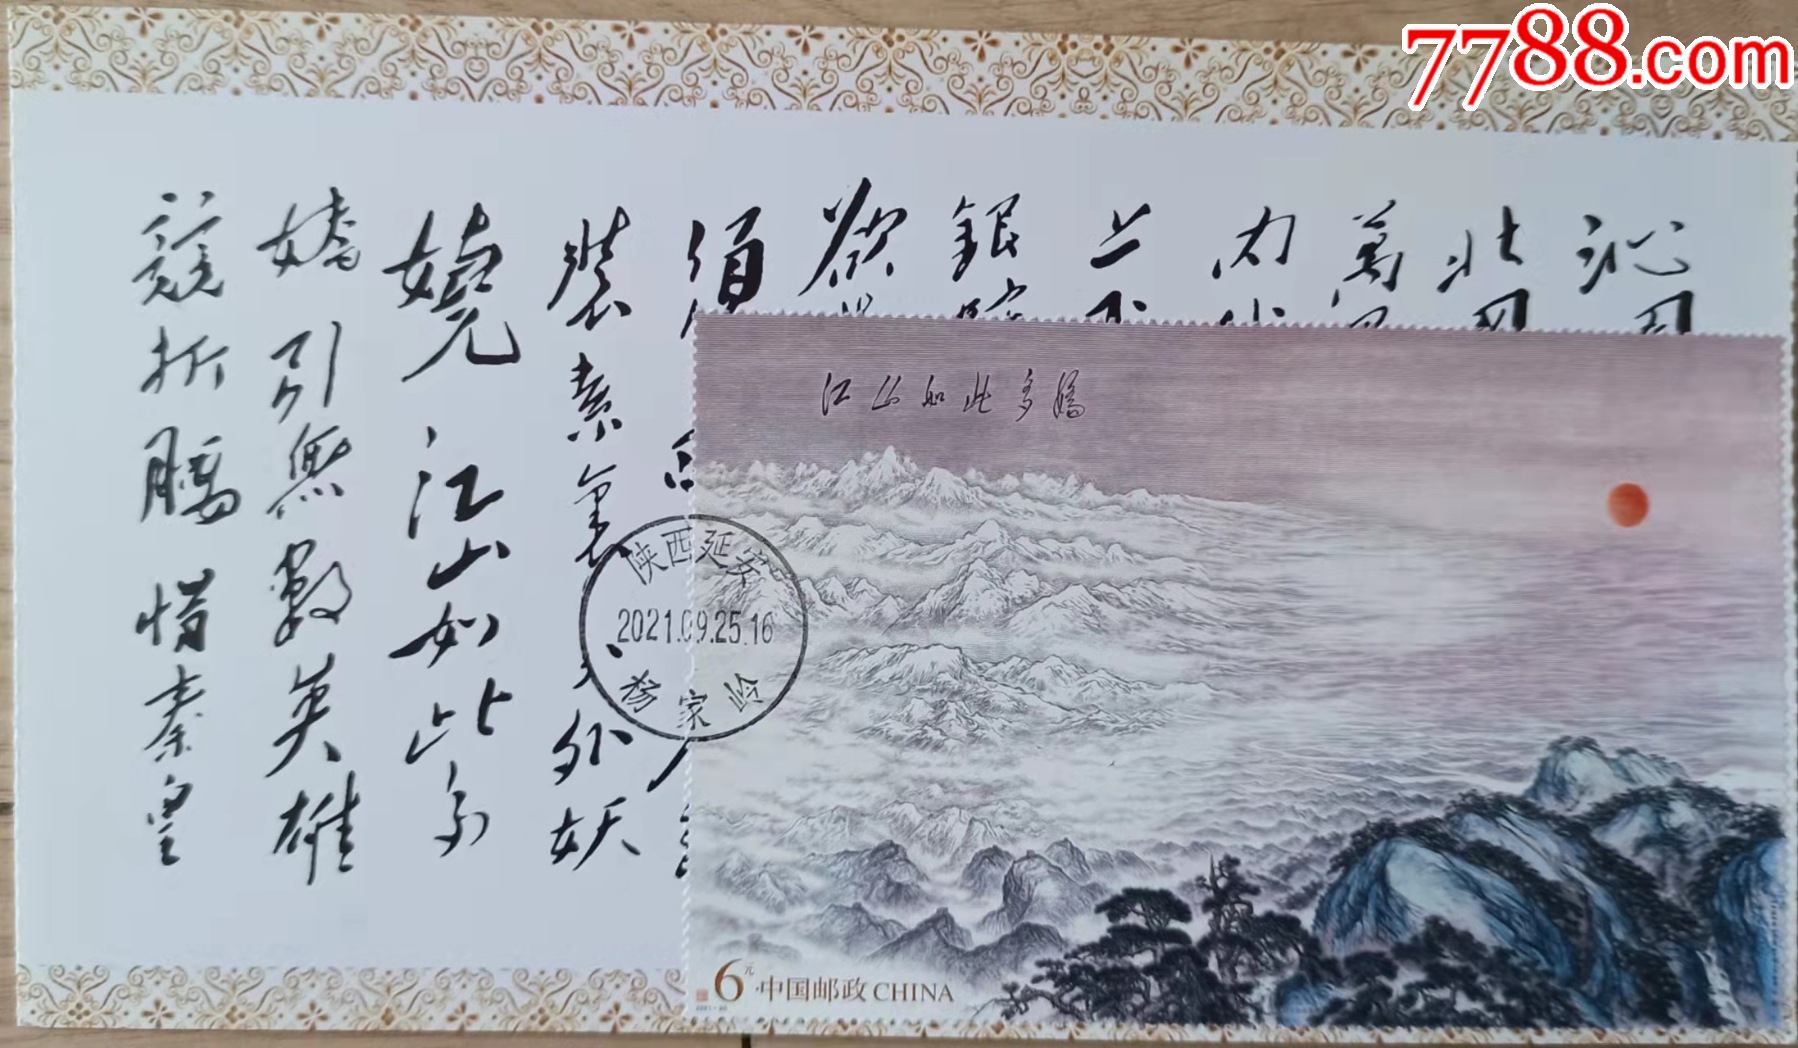 7788.com
沁
北
萬
内
上
銀
欲
須
裝素裹外妖
嬈江山如此多
嬌引無數英雄
競折腰惜秦皇
江山如此多嬌
陕西延安
2021.09.25.16
杨家岭
6元 中国邮政 CHINA